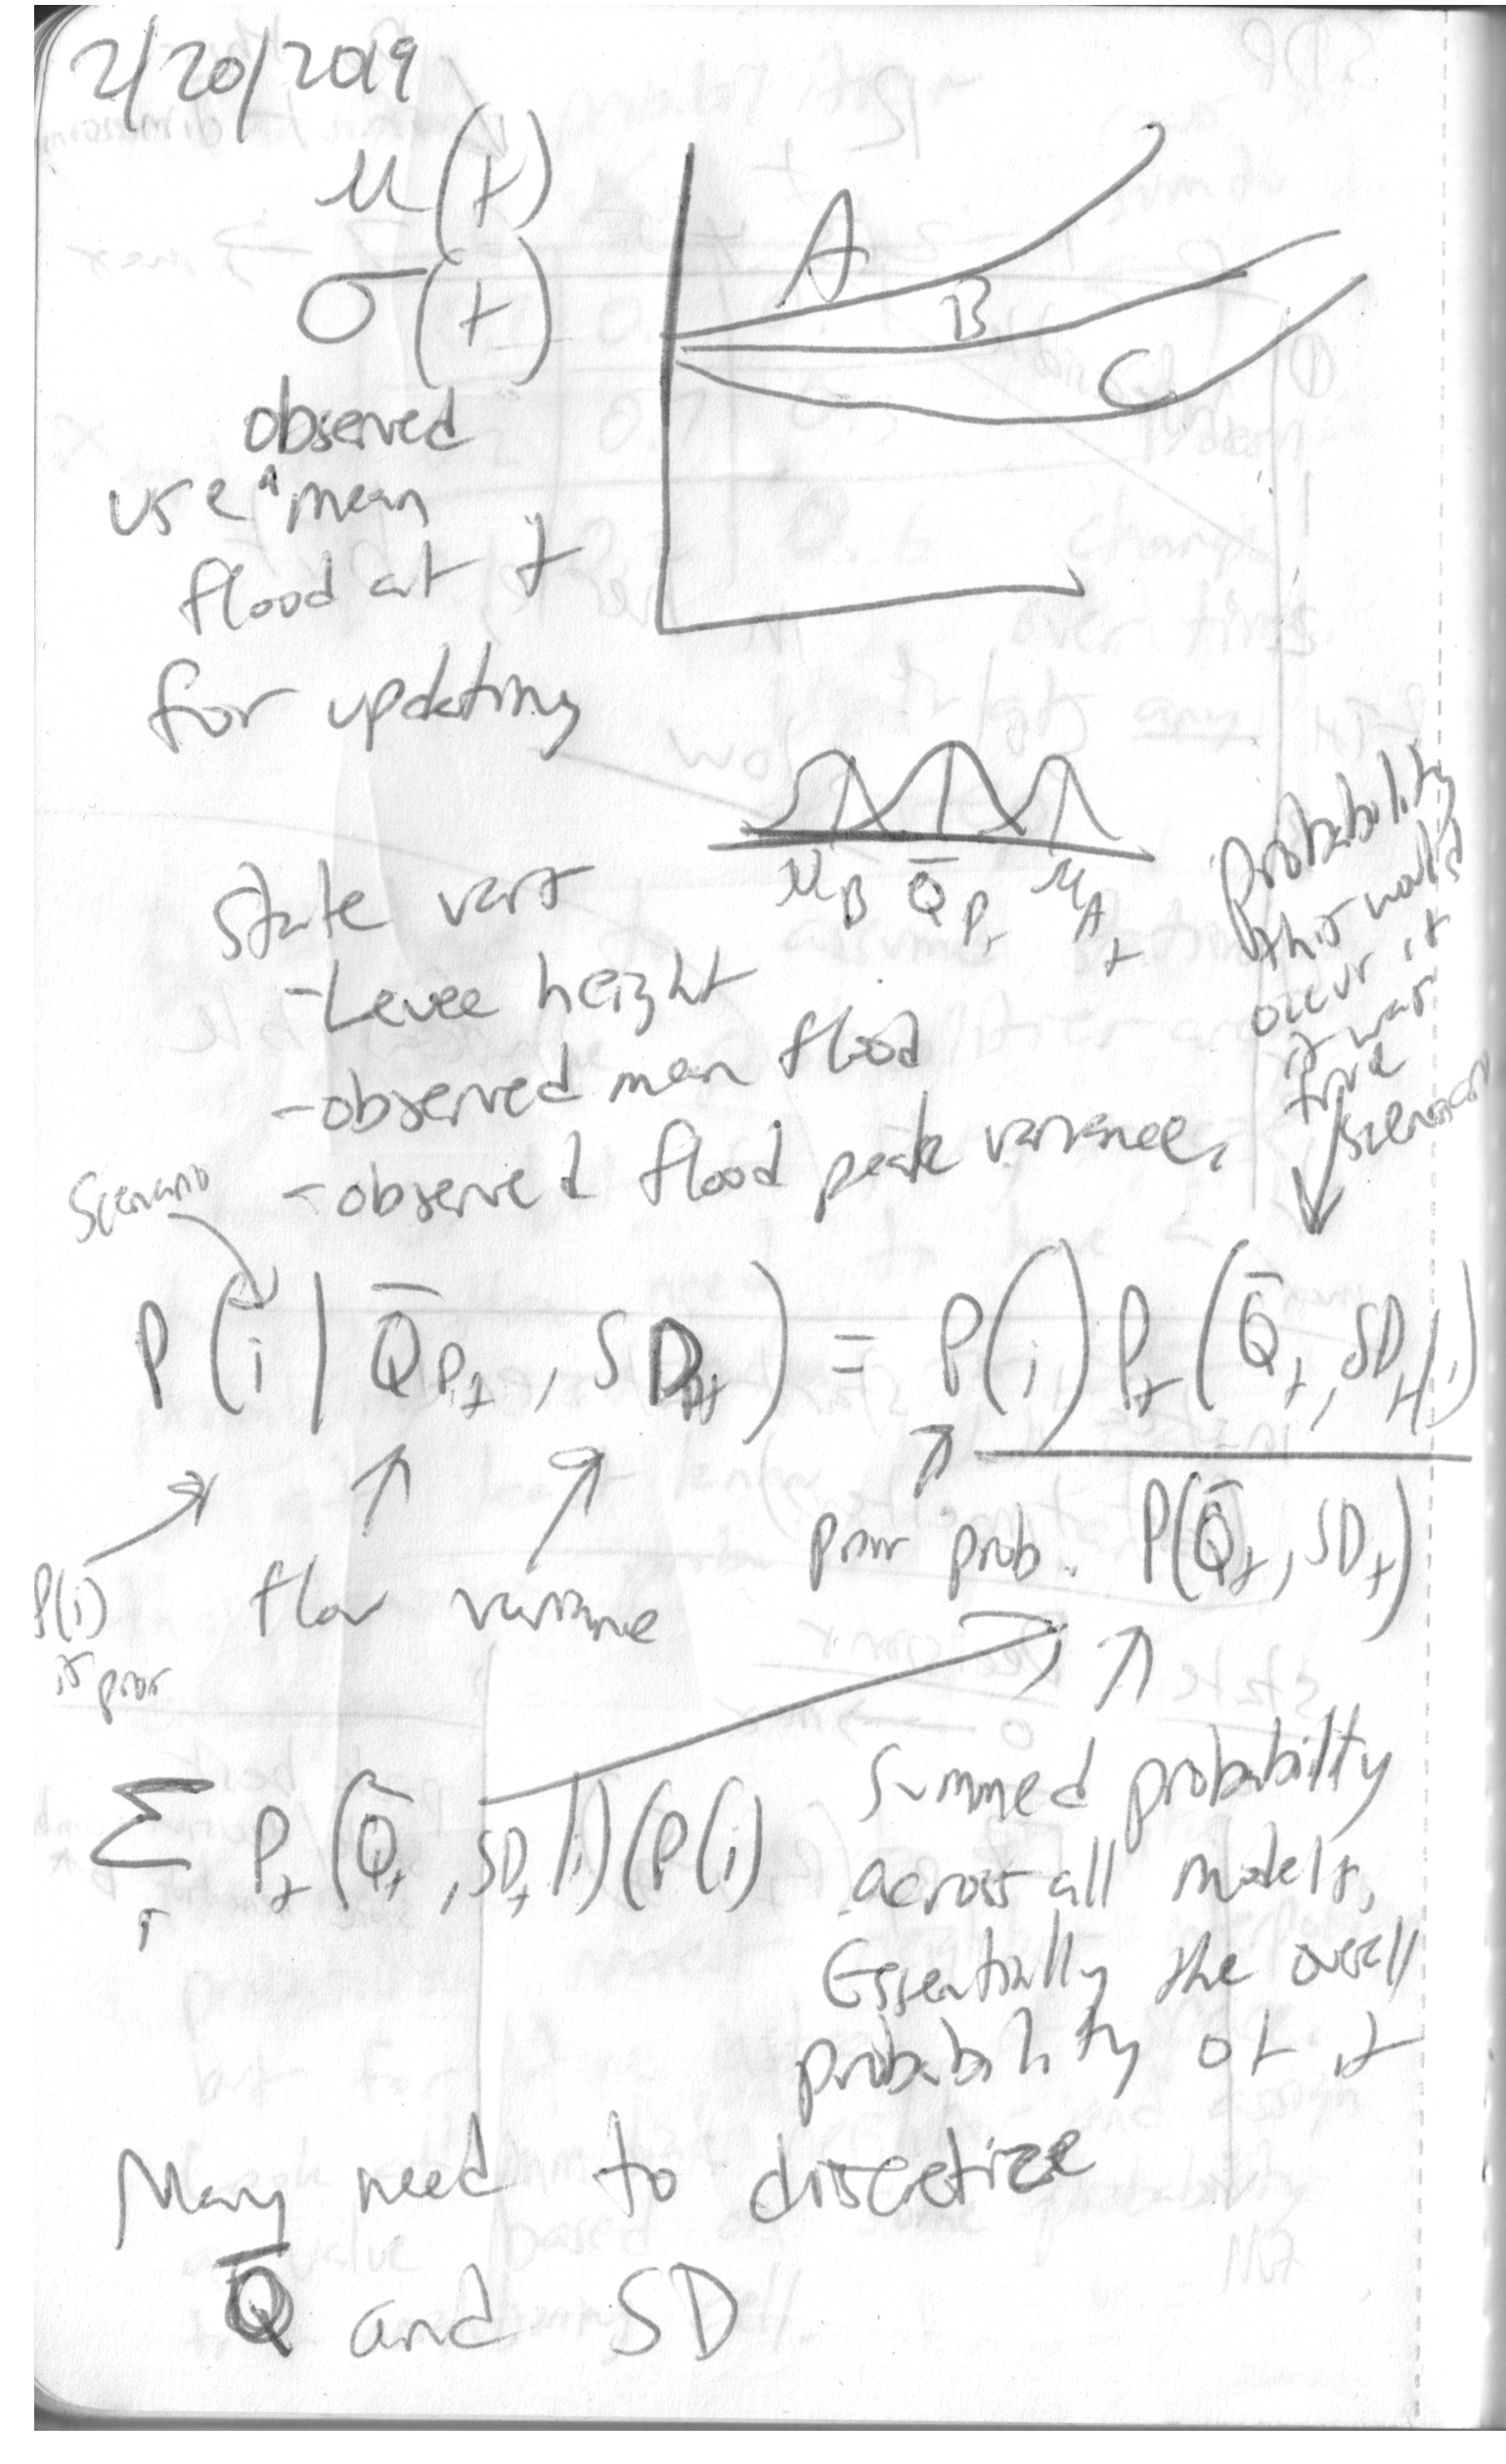 2/20/2019
μ(t)
σ(t)
A
B
C
observed
use ^ mean
flood at t
for updating
μB Q̄Pt μAt
State vars
-Levee height
-observed mean flood
-observed flood peak variance,
Probability
this would
occur if
it was
true
scenario
Scenario
P(i | Q̄Pt, SDPt) = P(i) Pt(Q̄t, SDt | i)
P(Q̄t, SDt)
prior prob.
P(i)
is prior
flow variance
Σ Pt(Q̄t, SDt | i)(P(i)
i
Summed probability
across all models,
Essentially the overall
probability of it
May need to discretize
Q̄ and SD